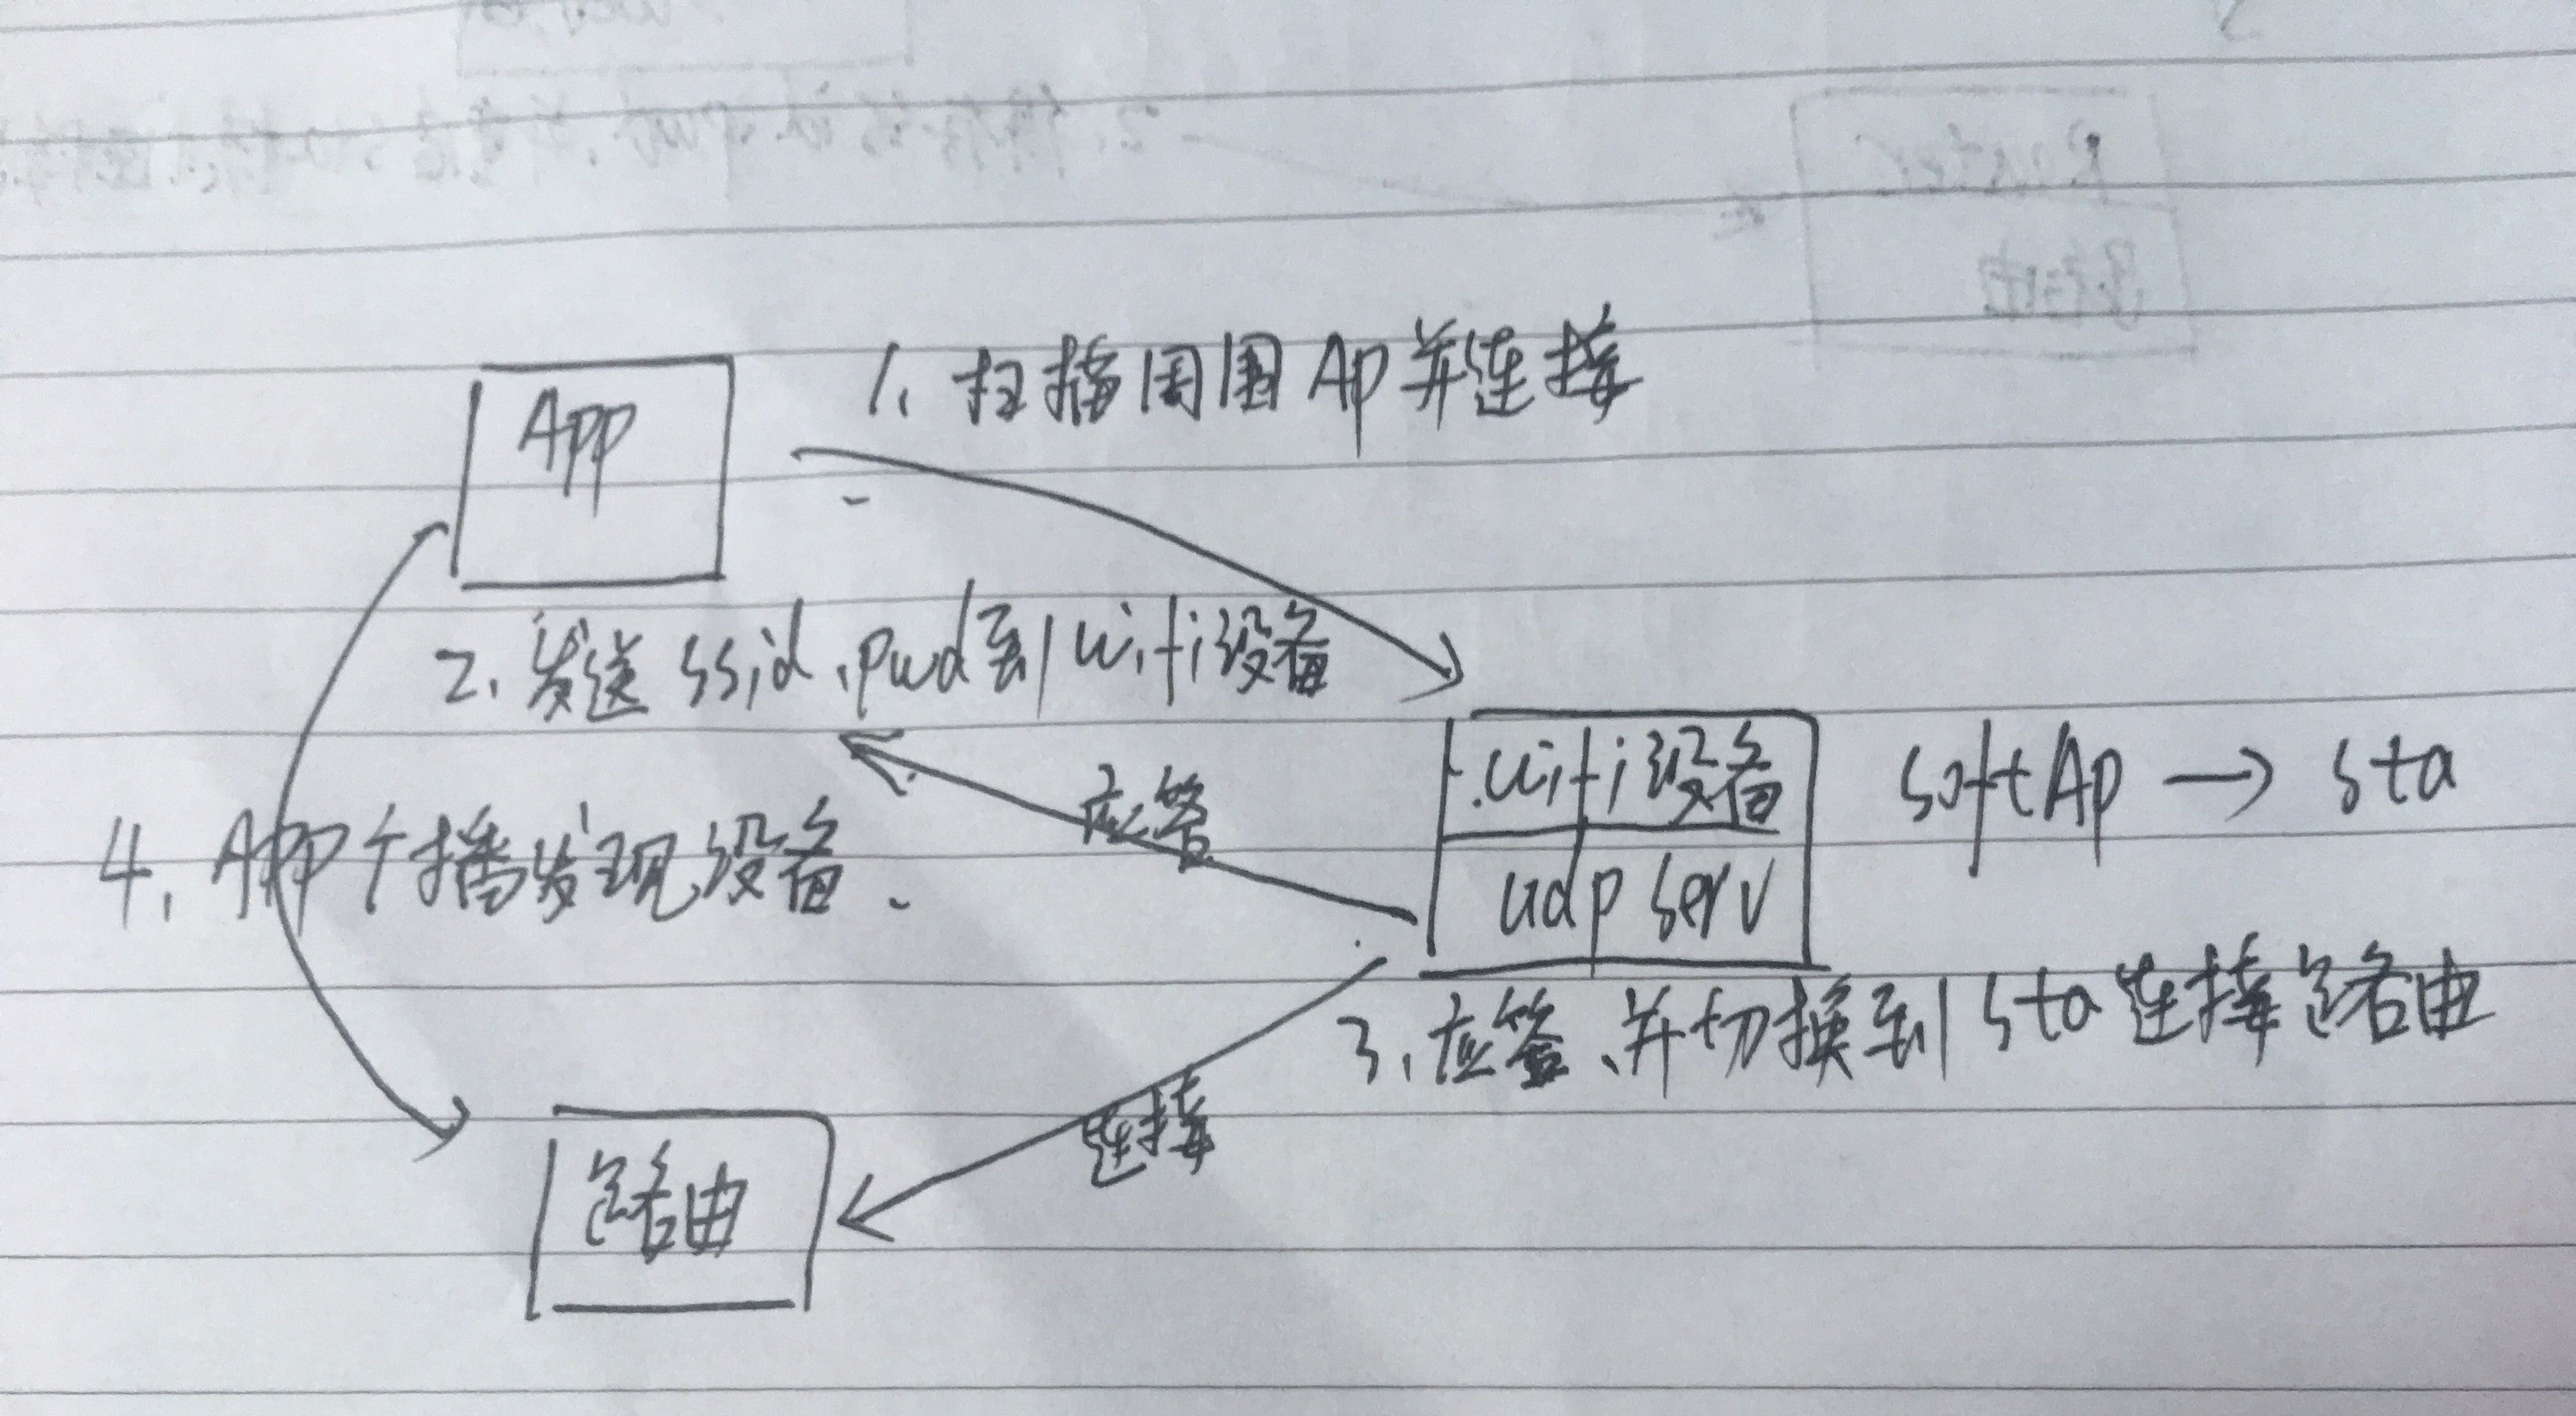 1、扫描周围Ap并连接
App
2、发送ssid、pwd到wifi设备
wifi设备
softAp → sta
应答
4、APP广播发现设备
udp serv
3、应答、并切换到sta连接路由
连接
路由
Router
路由